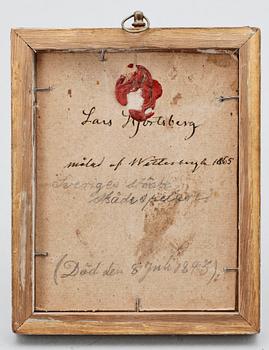 Lars Hjortsberg
måln af Wetterbergh 1865
Sveriges störste
skådespelare.
(Död den 8 Juli 1843).